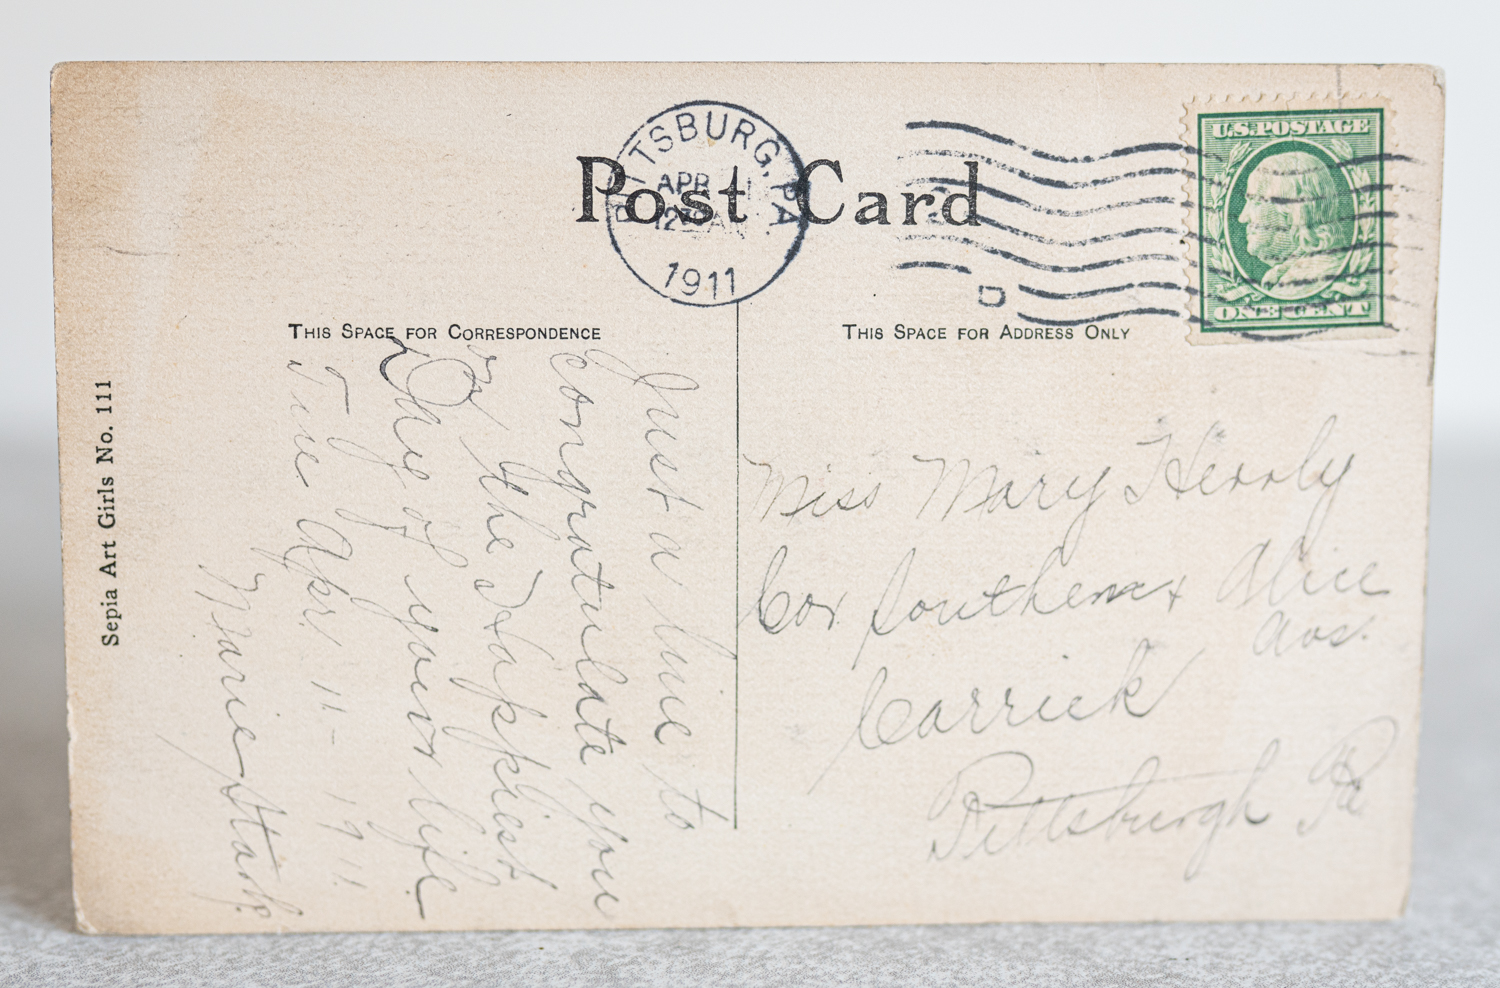 Post Card
PITTSBURG, PA
APR
12
1911
U.S. POSTAGE
ONE CENT
D
THIS SPACE FOR CORRESPONDENCE
THIS SPACE FOR ADDRESS ONLY
Sepia Art Girls No. 111
Just a line to
Congratulate you
on the Happiest
Day of your life
Tue Apr. 11 - 1911.
Marie Stark.
Miss Mary
Cor Southern + Alice
Ave.
Carrick
Pittsburgh Pa